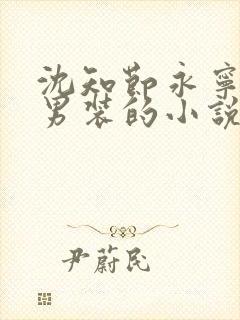 沈知節永寧
男裝的小說
尹蔚民